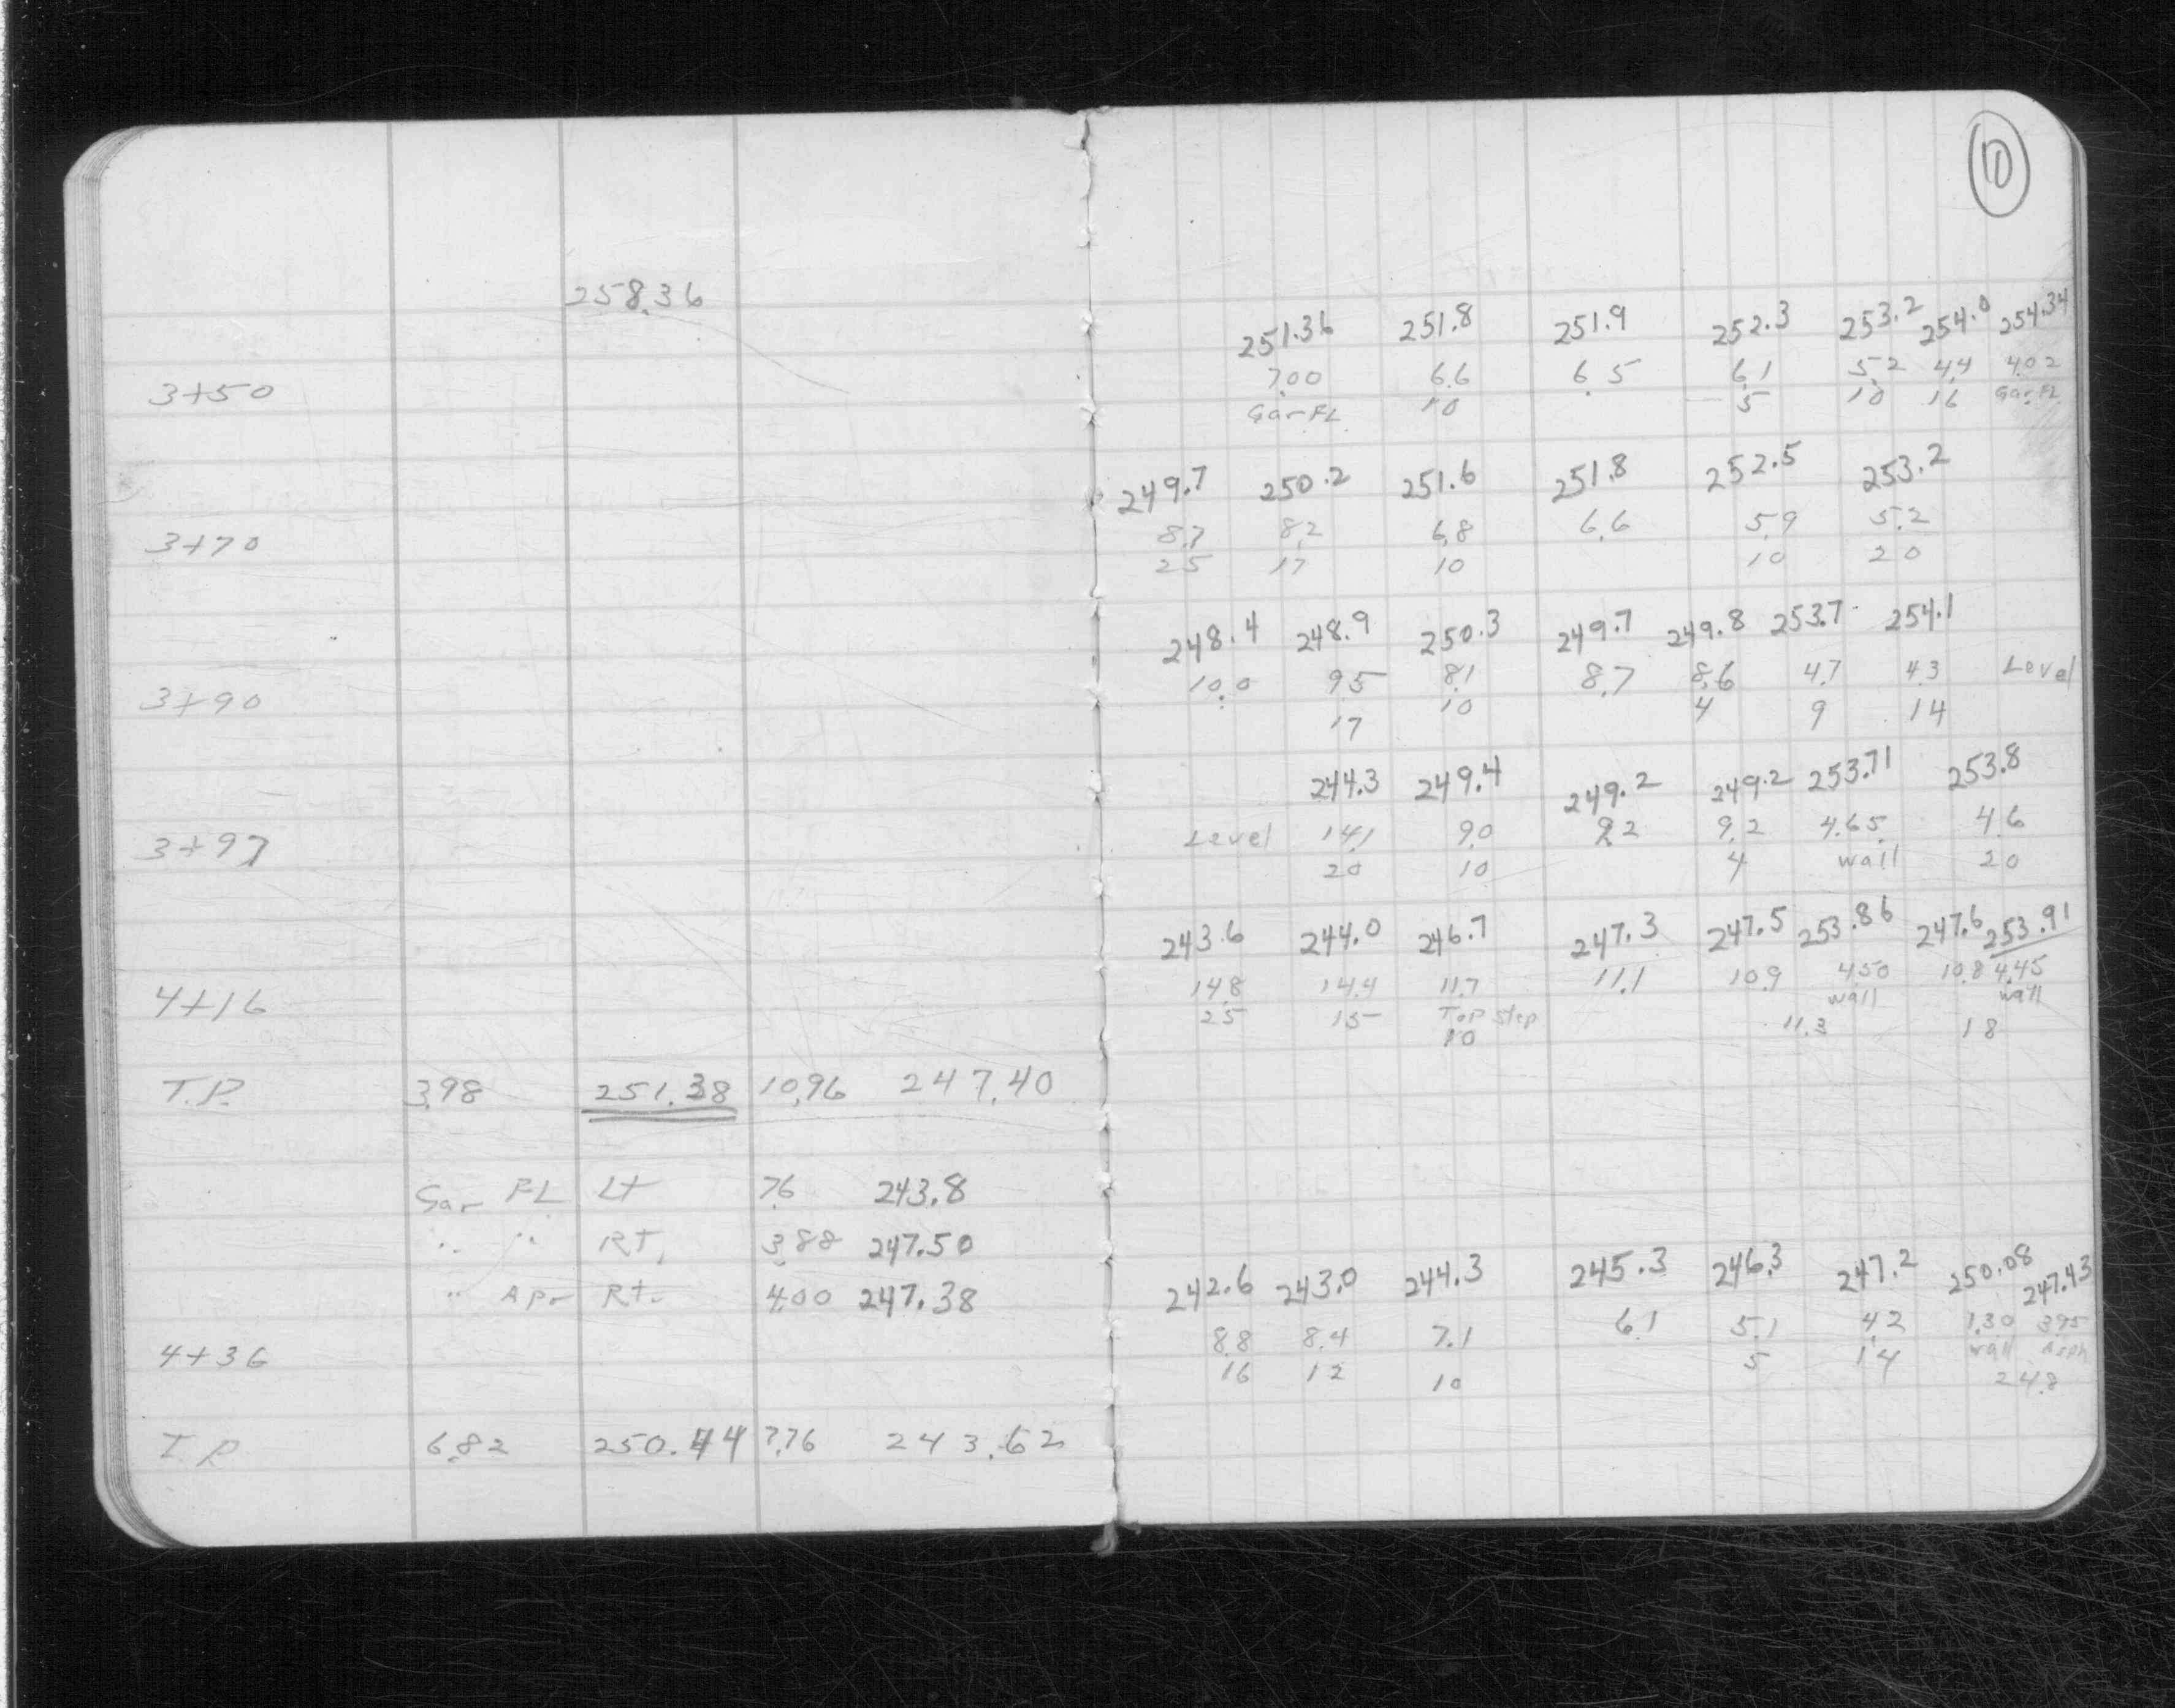 10
258.36
251.36 251.8 251.9 252.3 253.2 254.0 254.34
3+50 7.00 6.6 6.5 6.1 5.2 4.4 4.02
Gar FL 10 5 10 16 Gar. FL
249.7 250.2 251.6 251.8 252.5 253.2
3+70 8.7 8.2 6.8 6.6 5.9 5.2
25 17 10 10 20
248.4 248.9 250.3 249.7 249.8 253.7 254.1
3+90 10.0 9.5 8.1 8.7 8.6 4.7 4.3 Level
17 10 4 9 14
244.3 249.4 249.2 249.2 253.71 253.8
3+97 Level 14.1 9.0 9.2 9.2 4.65 4.6
20 10 4 wall 20
243.6 244.0 246.7 247.3 247.5 253.86 247.6 253.91
4+16 14.8 14.4 11.7 11.1 10.9 4.50 10.8 4.45
25 15 Top step wall wall
10 11.3 18
T.P. 3.98 251.38 10.96 247.40
Gar FL Lt 7.6 243.8
" " Rt. 3.88 247.50
" Apr Rt. 4.00 247.38
242.6 243.0 244.3 245.3 246.3 247.2 250.08 247.43
4+36 8.8 8.4 7.1 6.1 5.1 4.2 1.30 3.95
16 12 10 5 14 wall Asph
24.8
T.P. 6.82 250.44 7.76 243.62